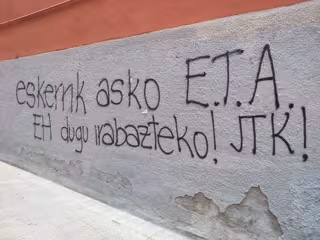 eskerrik asko E.T.A.
EH dugu irabazteko! JTK!